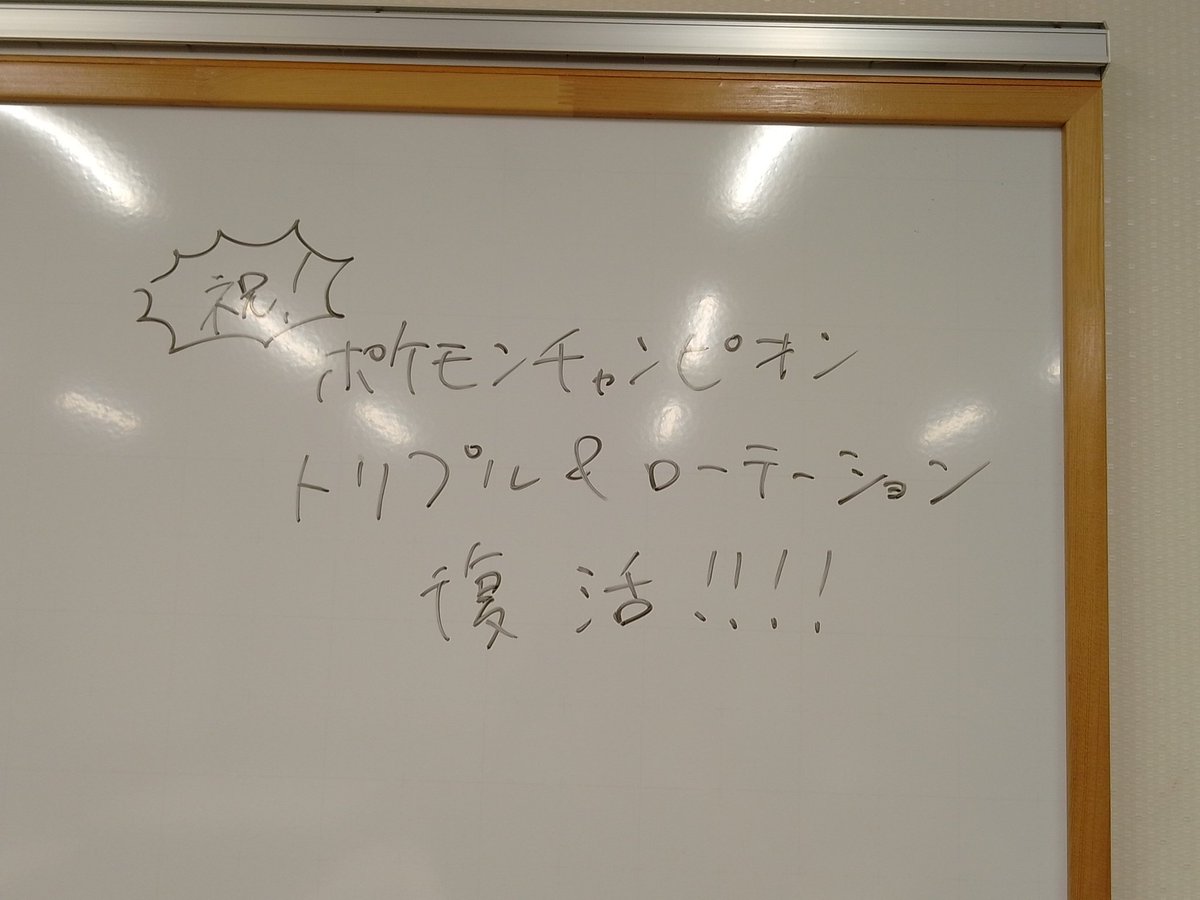 祝!
ポケモンチャンピオン
トリプル&ローテーション
復活!!!!